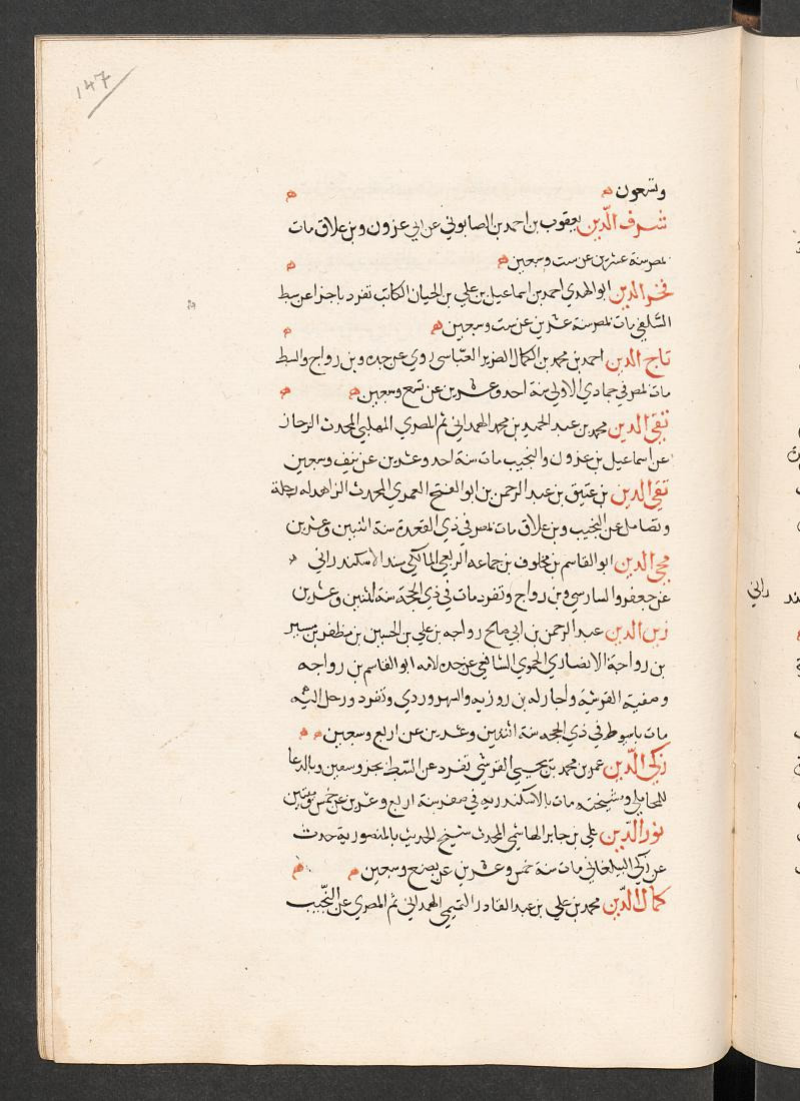 147
وتسعون
شرف الدين يعقوب بن احمد بن الصابوني عن ابي عزون وبن علاق مات
بمصر سنة عشرين عن ست وسبعين
فخر الدين ابو الهدي احمد بن اسماعيل بن علي بن الحباب الكاتب تفرد باجزا عن سبط
السلفي مات بمصر سنة عشرين عن ست وسبعين
تاج الدين احمد بن محمد بن الكمال الضرير العباسي روي عن جده وبن رواج والسبط
مات بمصر في جمادي الاولي سنة احد وعشرين عن تسع وسبعين
تقي الدين محمد بن عبد الحميد بن محمد الهمداني ثم المصري المهلبي المحدث الرحال
عن اسماعيل بن عزون والنجيب مات سنة احد وعشرين عن نيف وسبعين
تقي الدين بن عتيق بن عبد الرحمن بن ابو الفتح العمري المحدث الزاهد له رحلة
وفضا مل عن النجيب وبن علاق مات بمصر في ذي القعدة سنة اثنين وعشرين
محي الدين ابو القاسم بن مخلوف بن جماعه الربعي المالكي مسند الاسكندراني
عن جعفر والسارسي وبن رواج وتفرد مات في ذي الحجة سنة اثنين وعشرين
زين الدين عبد الرحمن بن ابي صالح رواحه بن علي بن الحسين بن مظفر بن
بن رواحة الانصاري الحموي الشافعي عن جده لامه ابو القاسم بن رواحه
وصفية القرشية واجاز له بن روزبه والسهروردي وتفرد ورحل اليه
مات باسيوط في ذي الحجه سنة اثنين وعشرين عن اربع وسبعين
زكي الدين عمر بن محمد بن يحيي القرشي تفرد عن السبط بجزو سعين وبالدعا
للمحاملي ومشيخته مات بالاسكندريه في صفر سنة اربع وعشرين عن خمس
نور الدين علي بن جابر الهاشمي المحدث شيخ الحديث بالمنصورية حدث
عن زكي البيلقاني مات سنة خمس وعشرين عن بضع وسبعين
كمال الدين محمد بن علي بن عبد القادر التميمي الهمداني ثم المصري عن النجيب
راني